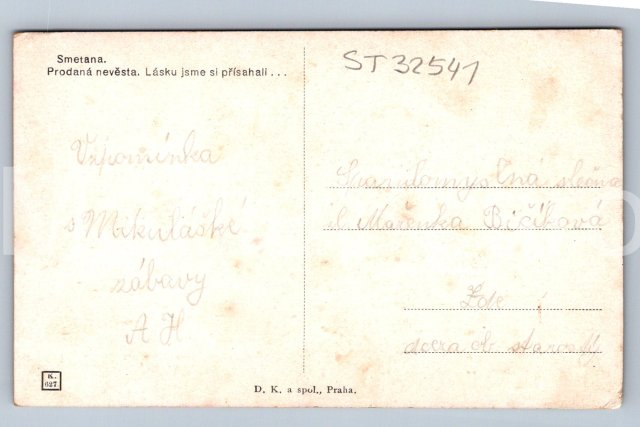 Smetana.
Prodaná nevěsta. Lásku jsme si přísahali . . .
ST32541
Vzpomínka
s Mikulášské
zábavy
A H
slečna
sl Mařenka Bičíková
Zde
dcera ob. starosty
K.
627
D. K. a spol., Praha.